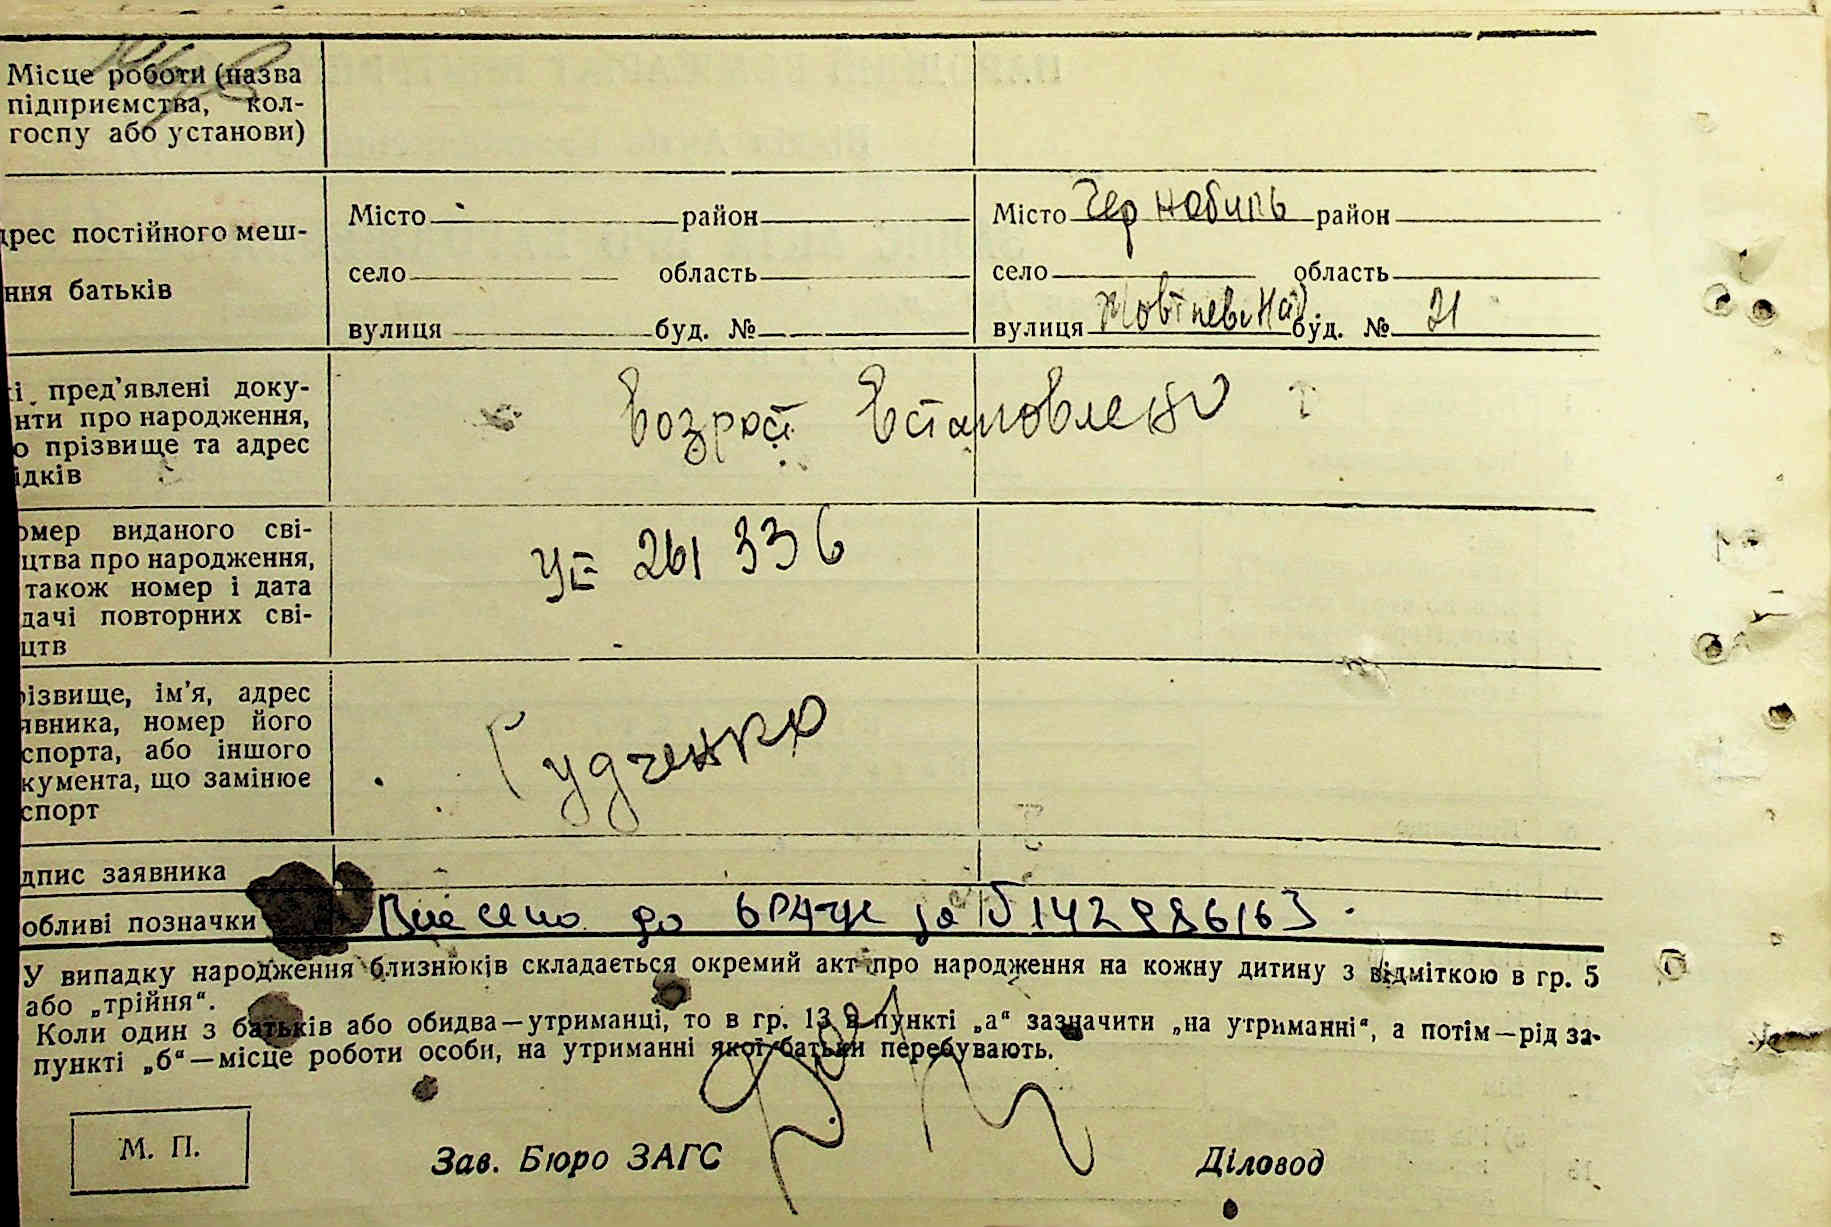 Місце роботи (назва
підприємства, кол-
госпу або установи)
дрес постійного меш-
ння батьків
Місто район
село область
вулиця буд. №
Місто Чорнобиль район
село область
вулиця Жовтнева буд. № 21
кі пред’явлені доку-
нти про народження,
о прізвище та адрес
ідків
Возраст Встановлено
омер виданого сві-
цтва про народження,
також номер і дата
дачі повторних сві-
цтв
УЕ 261 336
різвище, ім’я, адрес
явника, номер його
спорта, або іншого
кумента, що замінює
спорт
Гудченко
дпис заявника
обливі позначки Внесено до ДРАЦС за №
У випадку народження близнюків складається окремий акт про народження на кожну дитину з відміткою в гр. 5
або „трійня“.
Коли один з батьків або обидва—утриманці, то в гр. 13 в пункті „а“ зазначити „на утриманні“, а потім—рід за-
пункті „б“—місце роботи особи, на утриманні якої батьки перебувають.
М. П.
Зав. Бюро ЗАГС Діловод